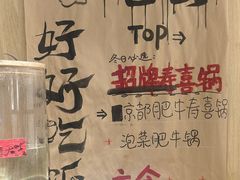 好好吃飯
TOP→
冬日必選:
招牌壽喜锅
→京都肥牛寿喜锅
→泡菜肥牛锅